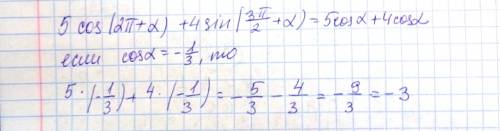 5 cos(2π+α) + 4 sin(3π/2 + α) = 5 cosα + 4 cosα
если cosα = -1/3, то
5·(-1/3) + 4·(-1/3) = -5/3 - 4/3 = -9/3 = -3